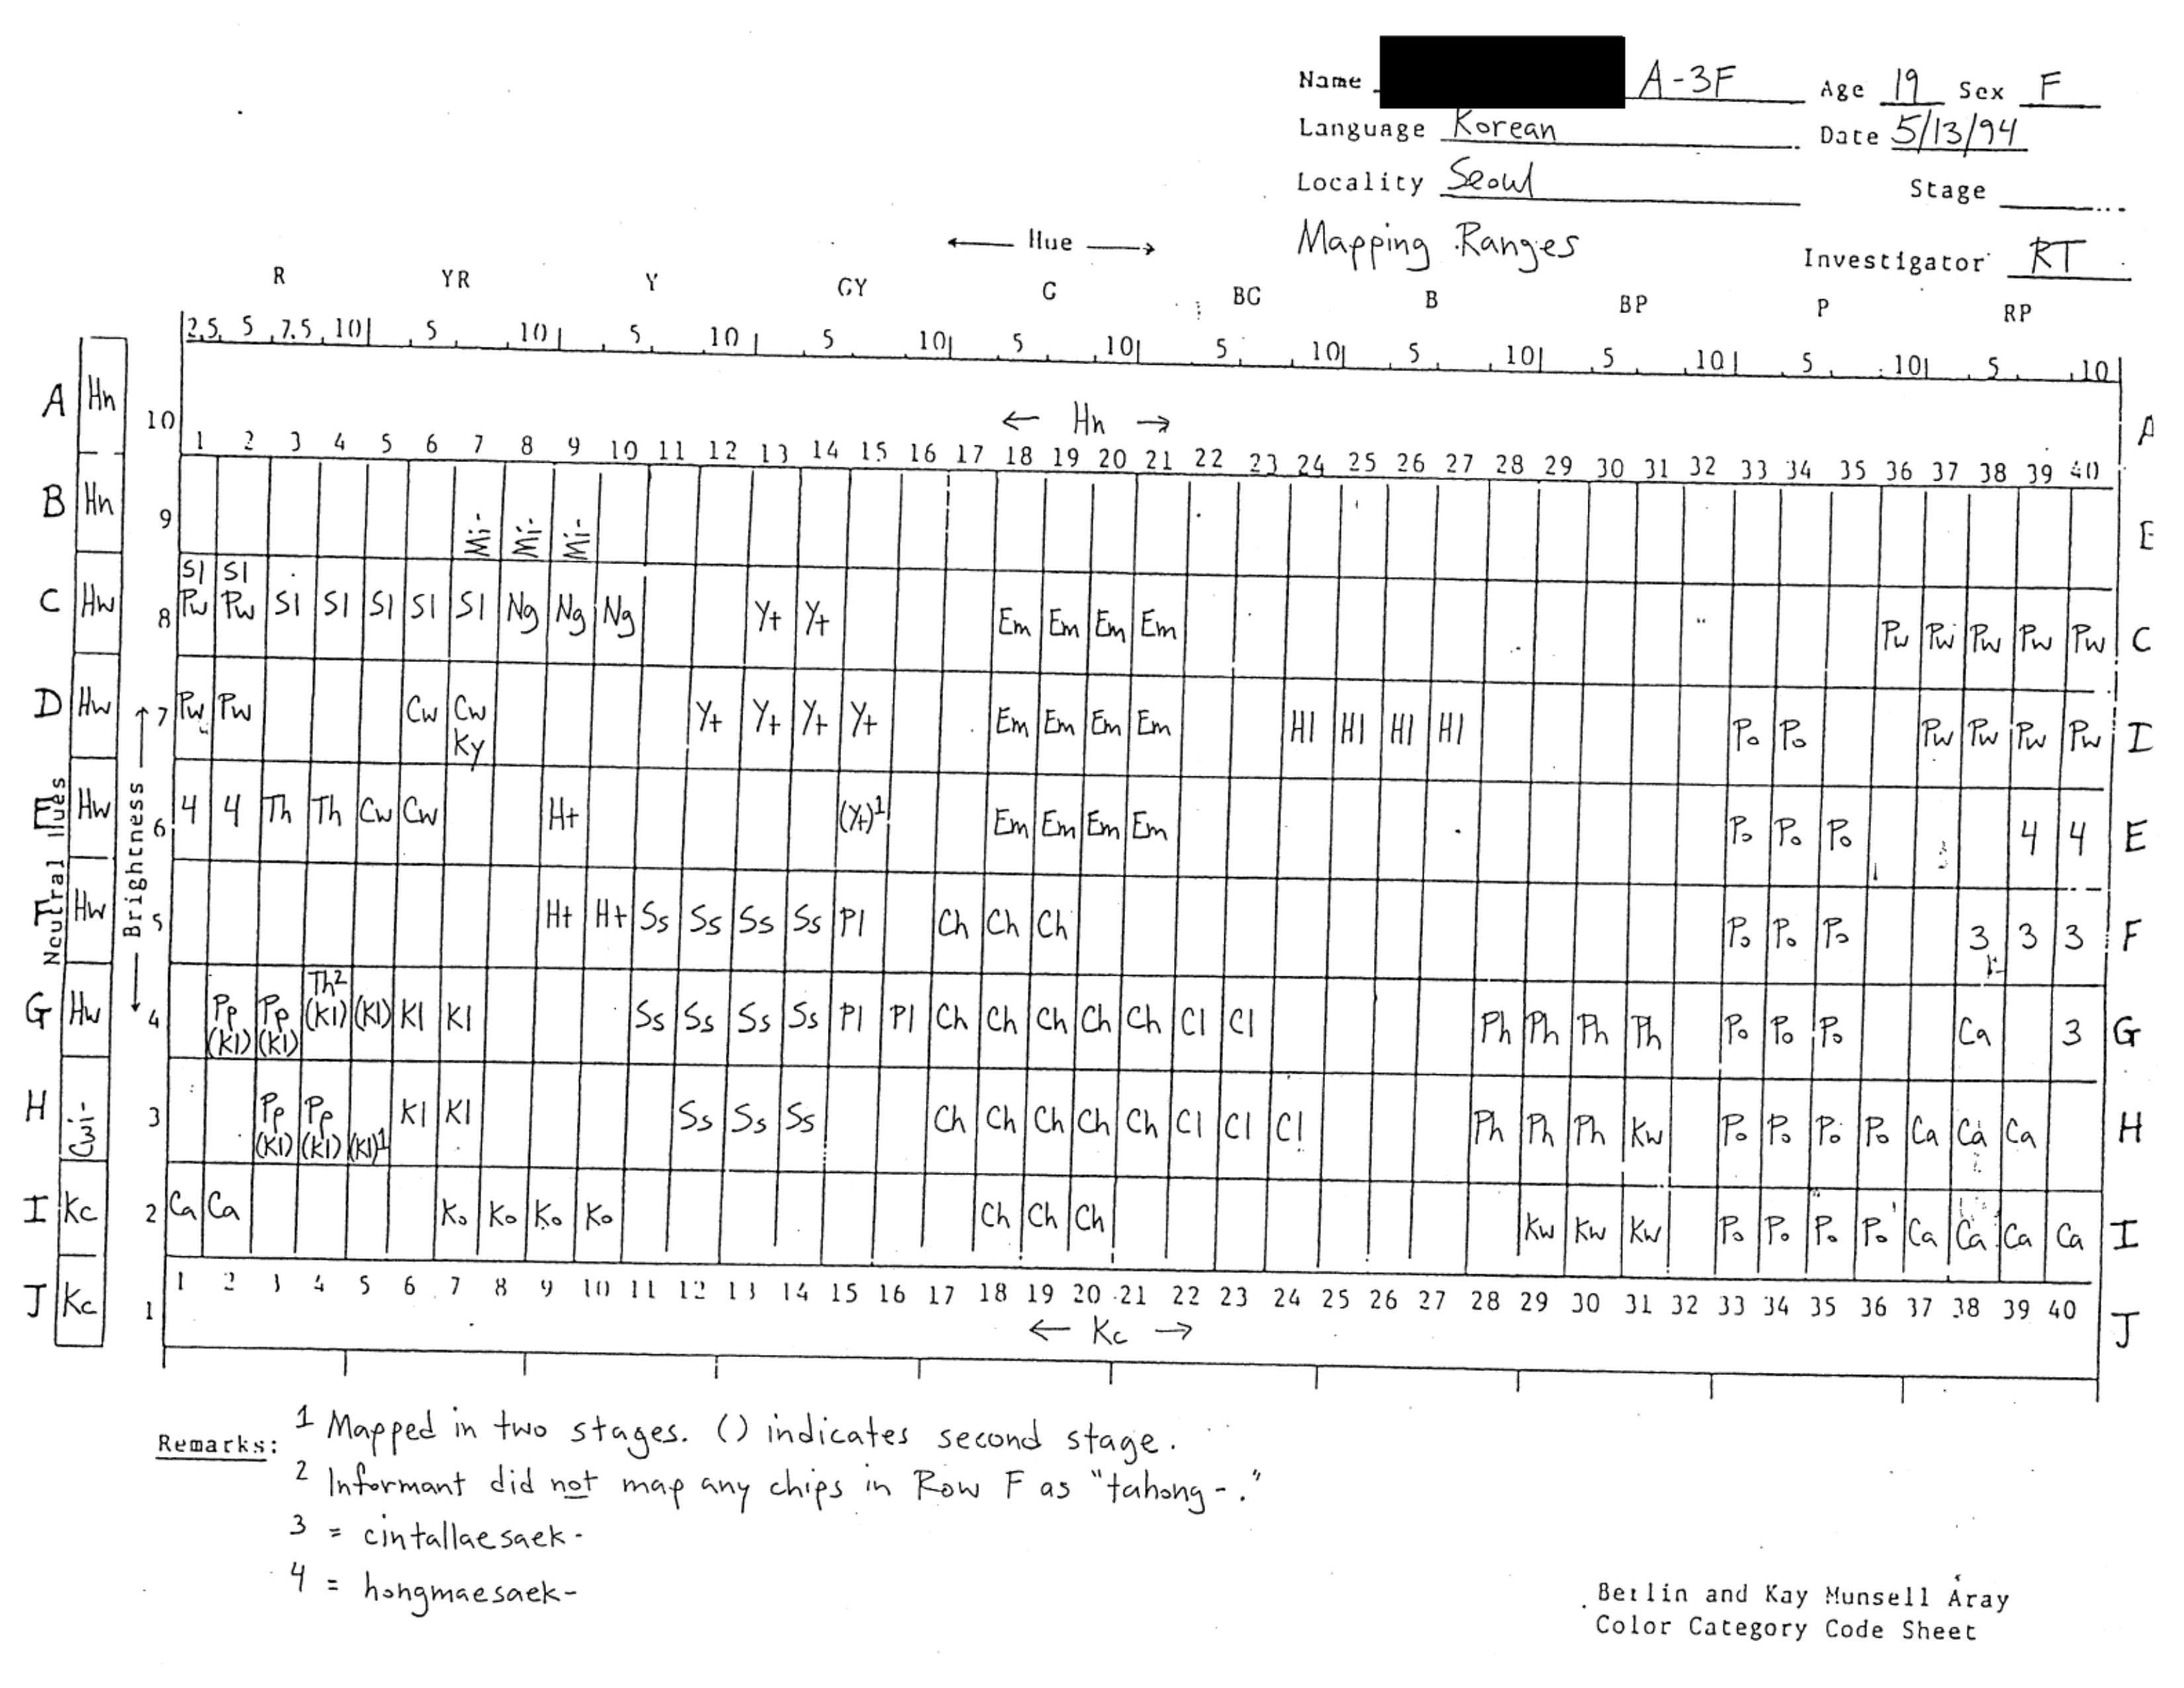 Name A-3F Age 19 Sex F
Language Korean Date 5/13/94
Locality Seoul Stage
Mapping Ranges Investigator RT
← Hue →
R YR Y GY G BG B BP P RP
2.5 5 7.5 10 5 10 5 10 5 10 5 10 5 10 5 10 5 10 5 10 5 10
A Hn 10 ← Hn → A
1 2 3 4 5 6 7 8 9 10 11 12 13 14 15 16 17 18 19 20 21 22 23 24 25 26 27 28 29 30 31 32 33 34 35 36 37 38 39 40
B Hn 9
Sl Sl
C Hw 8 Pw Pw Sl Sl Sl Sl Sl Ng Ng Ng Y+ Y+ Em Em Em Em Pw Pw Pw Pw Pw C
D Hw 7 Pw Pw Cw Cw Y+ Y+ Y+ Y+ Em Em Em Em Hl Hl Hl Hl Po Po Pw Pw Pw Pw
Ky
E Hw 6 4 4 Th Th Cw Cw H+ (Y+)1 Em Em Em Em Po Po Po 4 4 E
F Hw 5 H+ H+ Ss Ss Ss Ss Pl Ch Ch Ch Po Po Po 3 3 3 F
Th2
G Hw 4 Pp Pp (Kl) (Kl) Kl Kl Ss Ss Ss Ss Pl Pl Ch Ch Ch Ch Ch Cl Cl Ph Ph Ph Ph Po Po Po Ca 3 G
(Kl) (Kl)
H 3 Pp Pp Kl Kl Ss Ss Ss Ch Ch Ch Ch Ch Cl Cl Cl Ph Ph Ph Kw Po Po Po Po Ca Ca Ca H
(Kl) (Kl) (Kl)1
I Kc 2 Ca Ca Ko Ko Ko Ko Ch Ch Ch Kw Kw Kw Po Po Po Po Ca Ca Ca Ca I
J Kc 1 1 2 3 4 5 6 7 8 9 10 11 12 13 14 15 16 17 18 19 20 21 22 23 24 25 26 27 28 29 30 31 32 33 34 35 36 37 38 39 40 J
← Kc →
Neutral Hues
← Brightness →
Remarks: 1 Mapped in two stages. () indicates second stage.
2 Informant did not map any chips in Row F as "tahong-."
3 = cintallaesaek-
4 = hongmaesaek-
Berlin and Kay Munsell Aray
Color Category Code Sheet